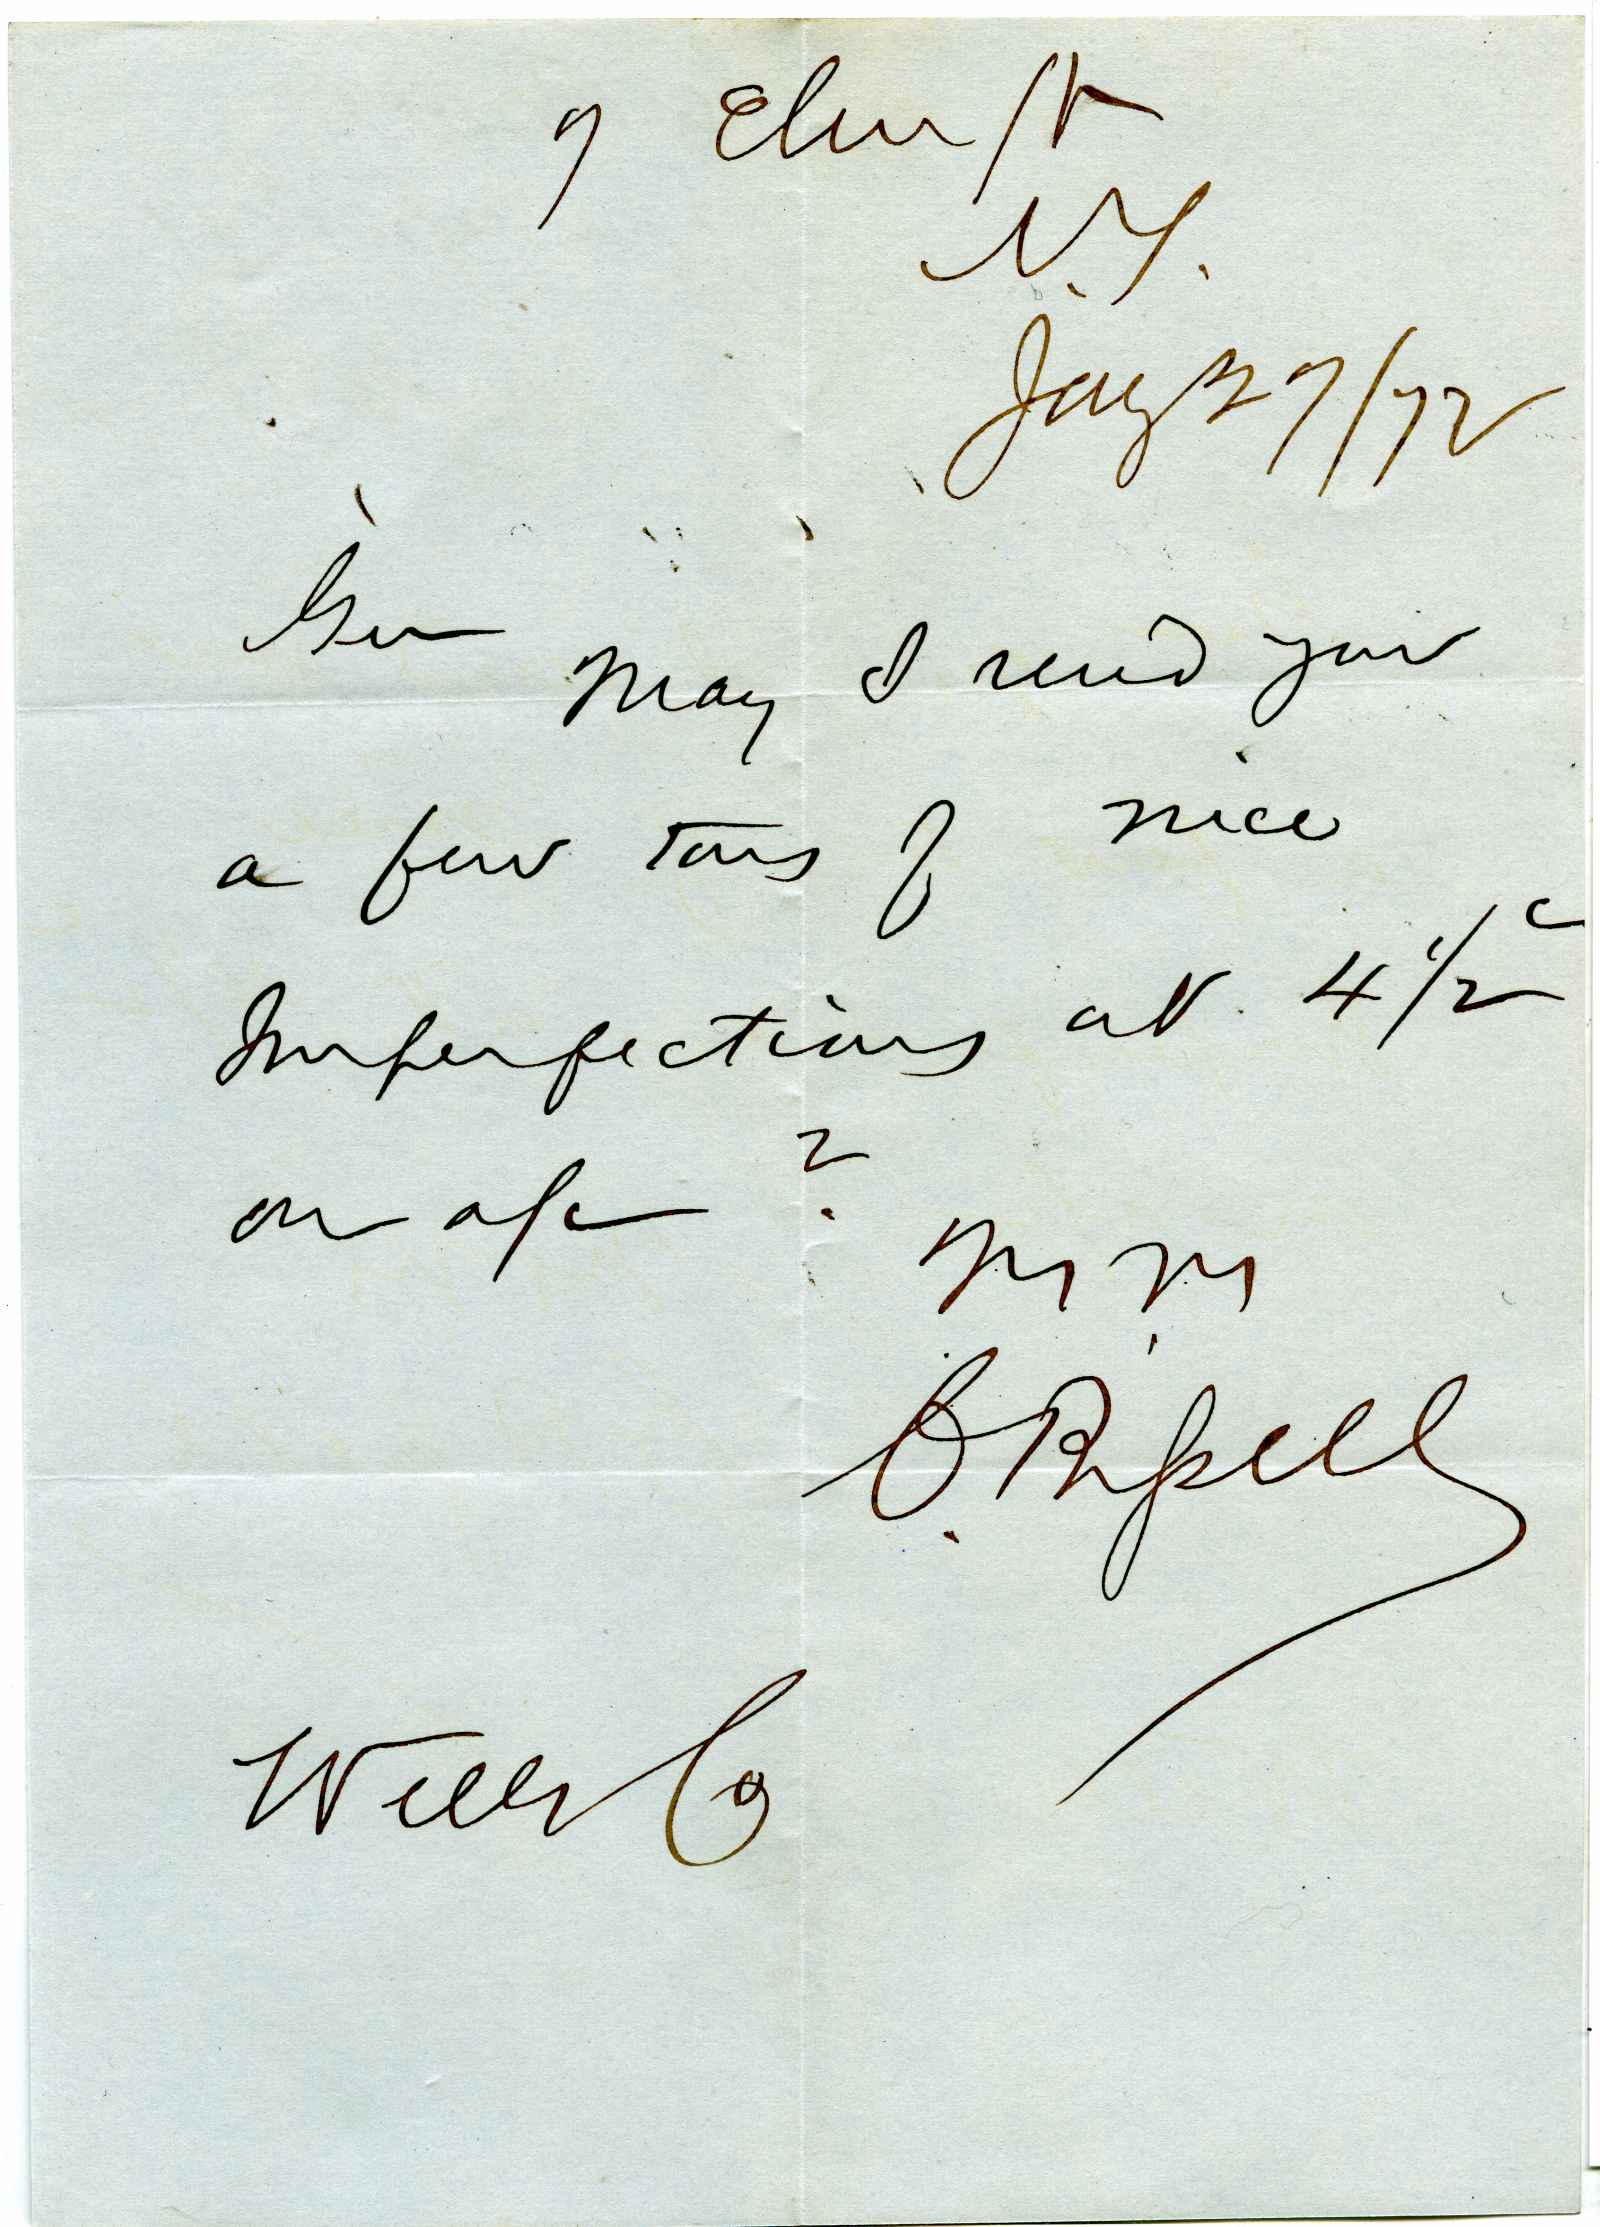 7 Elm St
N.Y.
Jay 27/72
Gen
May I send you
a few tons of nice
Imperfections at 4 1/2 c
on a/c ?
O. Russell
Wells Co